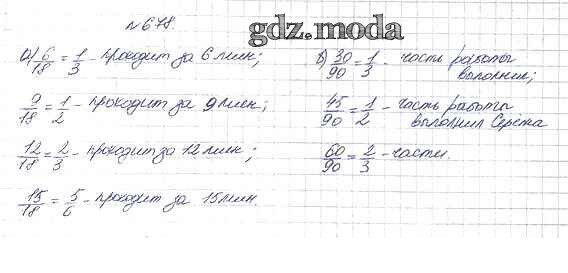 №678.
gdz.moda
а) 6/18 = 1/3 - проходит за 6 мин;
9/18 = 1/2 - проходит за 9 мин;
12/18 = 2/3 - проходит за 12 мин;
15/18 = 5/6 - проходит за 15 мин.
б) 30/90 = 1/3 - часть работы
выполнил;
45/90 = 1/2 - часть работы
выполнил Серёжа
60/90 = 2/3 - части.